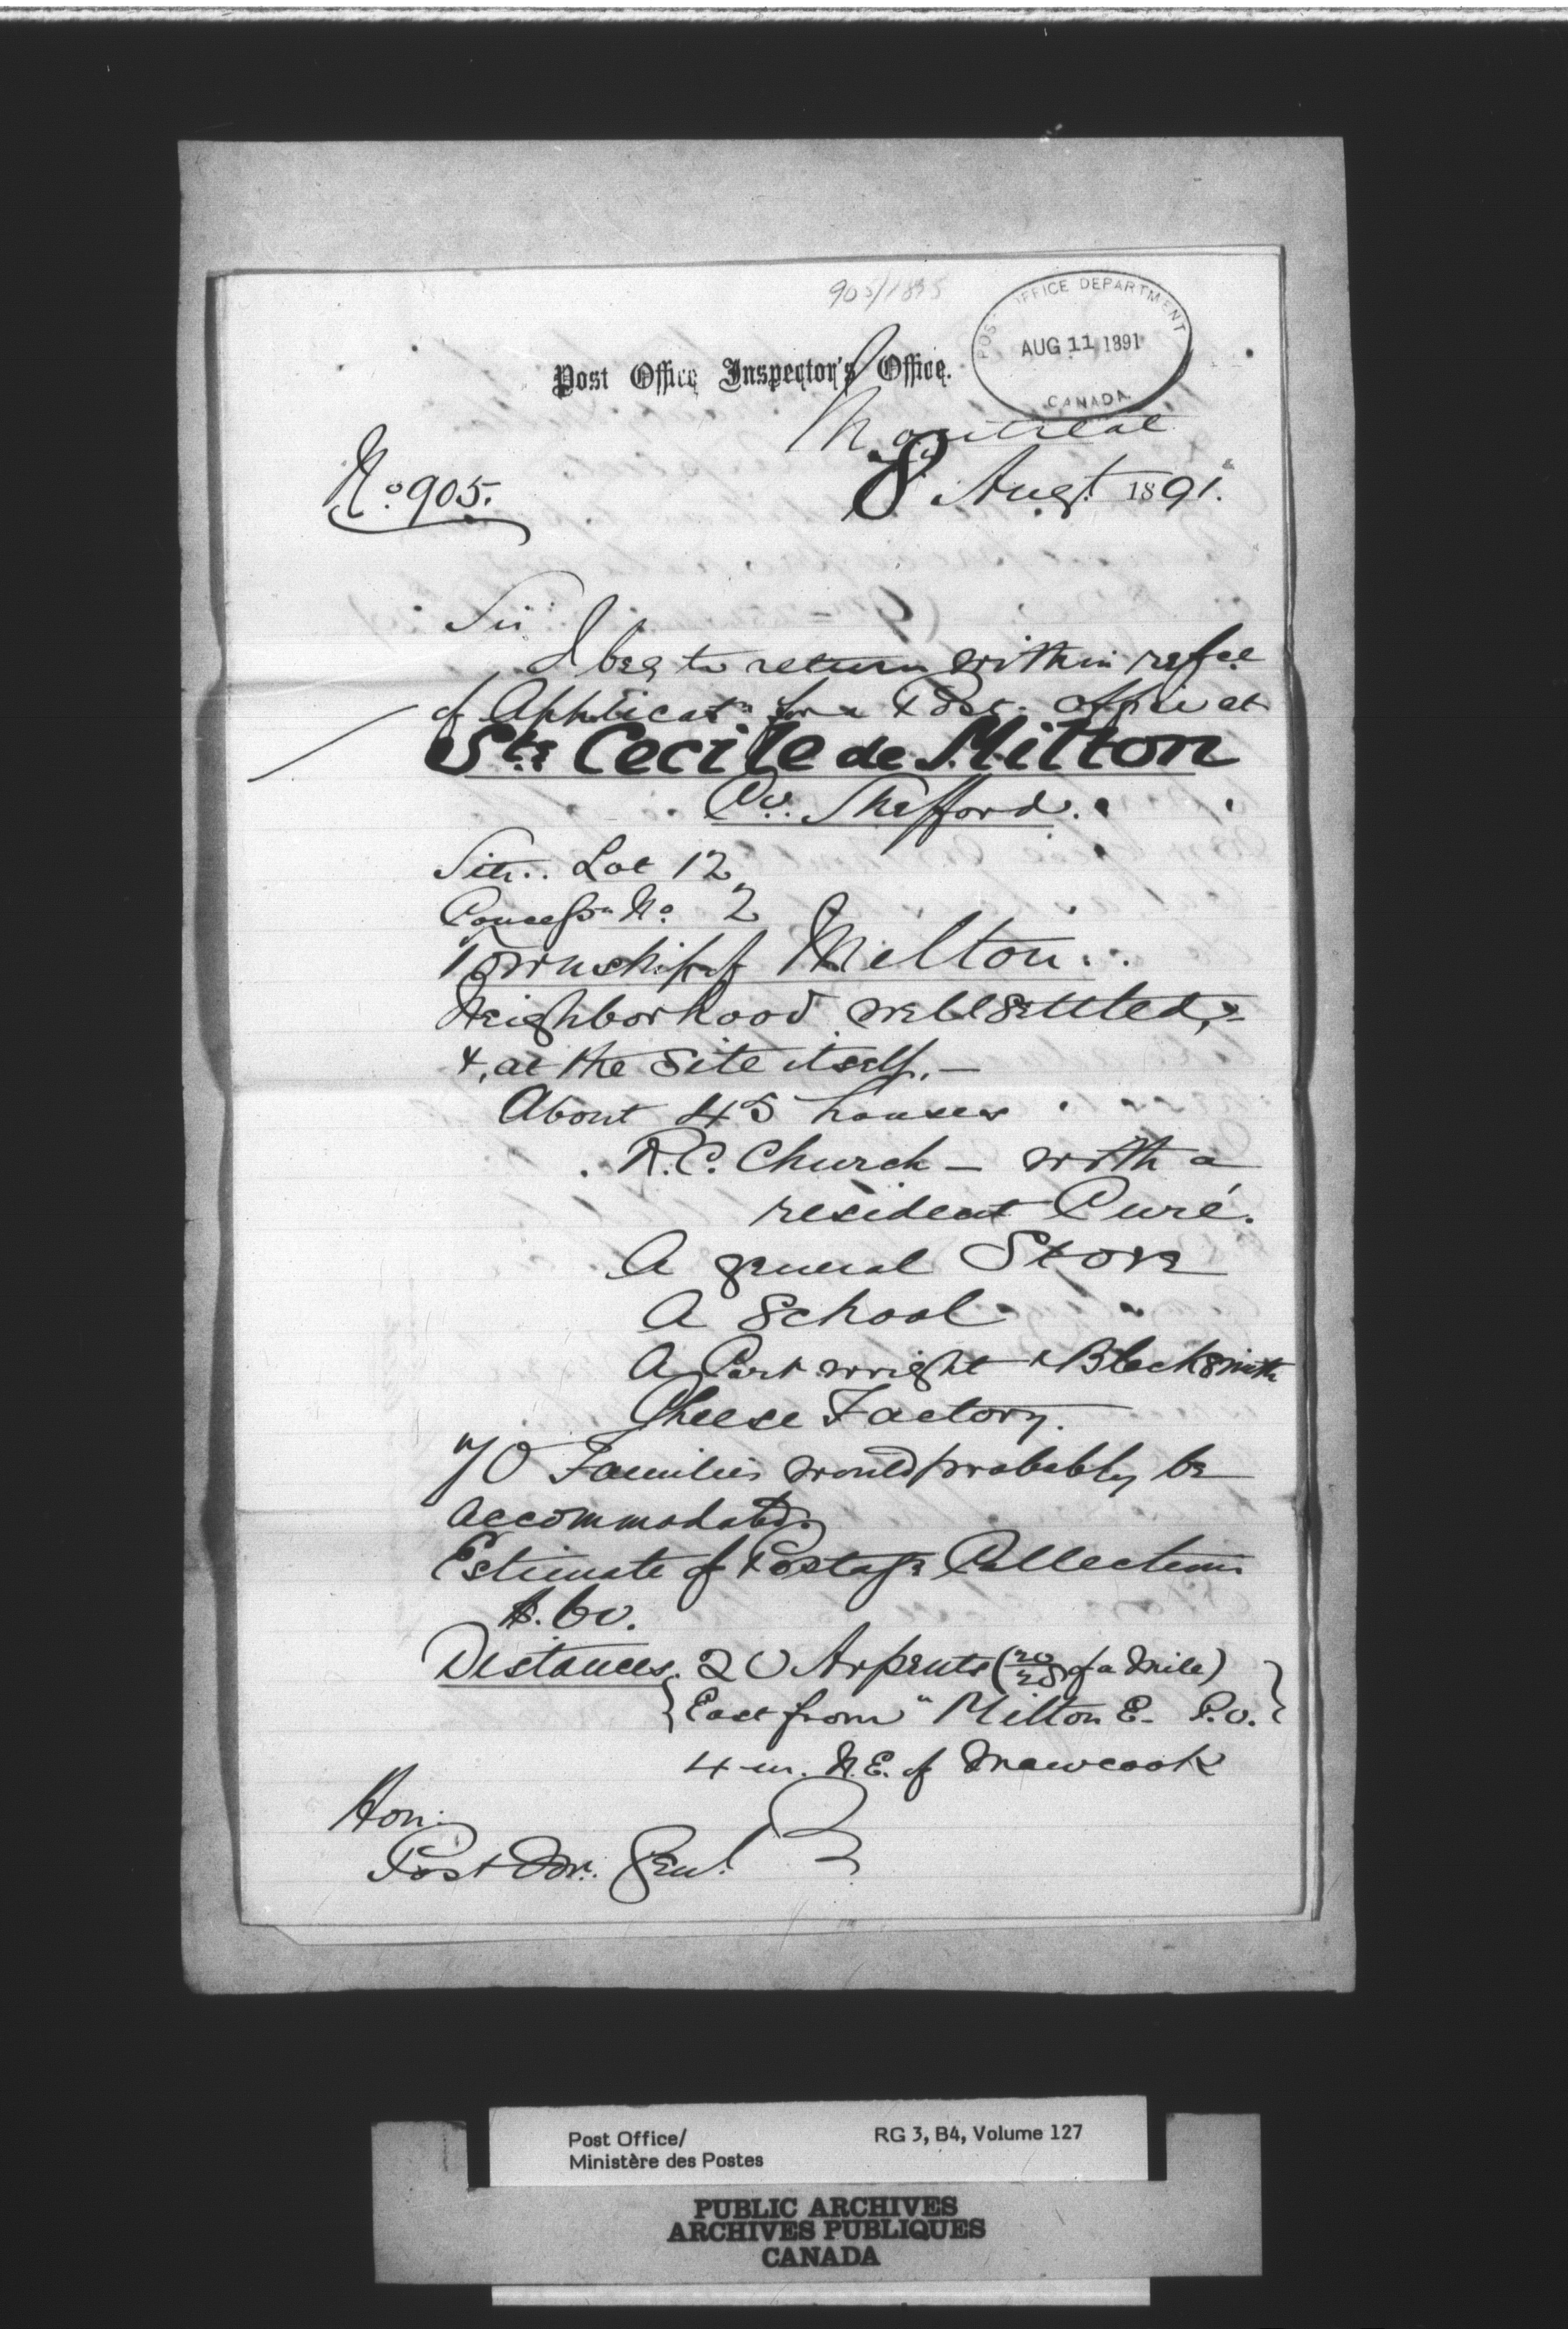 905/1895
POST OFFICE DEPARTMENT
AUG 11 1891
CANADA
Post Office Inspector's Office.
Montreal
No 905.
8 Augt. 1891.
Sir
I beg to return within refce
of Applicatn for a Post office at
Ste Cecile de Milton
Co. Shefford.
Site.. Lot 12
Concessn No 2
Township of Milton..
Neighborhood well settled,
&, at the site itself.—
About 45 houses
R.C. Church — with a
resident Curé.
A general Store
A School
A Cartwright & Blacksmith
Cheese Factory.
70 Families would probably be
accommodated.
Estimate of Postage Collections
$.60.
Distances. 20 Arpents (20/28 of a Mile)
East from "Milton E. P.O.
4 m. N.E. of Mawcook
Hon.
Post Mr. Genl.
Post Office/
Ministère des Postes
RG 3, B4, Volume 127
PUBLIC ARCHIVES
ARCHIVES PUBLIQUES
CANADA